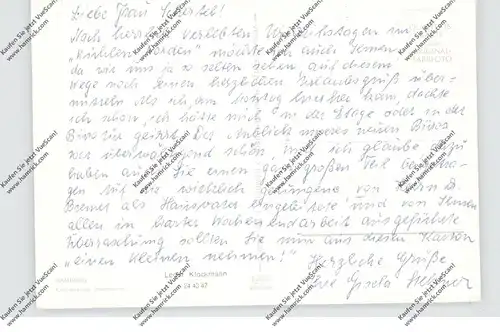 Liebe Frau Scherteb!
Nach herrlich verlebten Urlaubstagen im
"Kühlen Norden" möchte ich auch Ihnen,
da wir uns ja so selten sehen auf diesem
Wege noch einen herzlichen Urlaubsgruß über-
mitteln. Als ich am Montag hierher kam, dachte
ich schon, ich hätte mich in der Etage oder in der
Bürotür geirrt. Der Anblick unseres neuen Büros
war überwältigend schön und ich glaube dazu
haben auch Sie einen ganz großen Teil beigetra-
gen. Für die wirklich gelungene von Herrn D.
Bremer als Hausvater eingeleitete und von Ihnen
allen in harter Wochenendarbeit ausgeführte
Überraschung sollten Sie nun aus diesem Karton
"einen kleinen nehmen"!
Herzliche Grüße
Ihre Gisela
Klackmann
24 42 67
Kaufen Sie jetzt VueScan!
www.hamrick.com